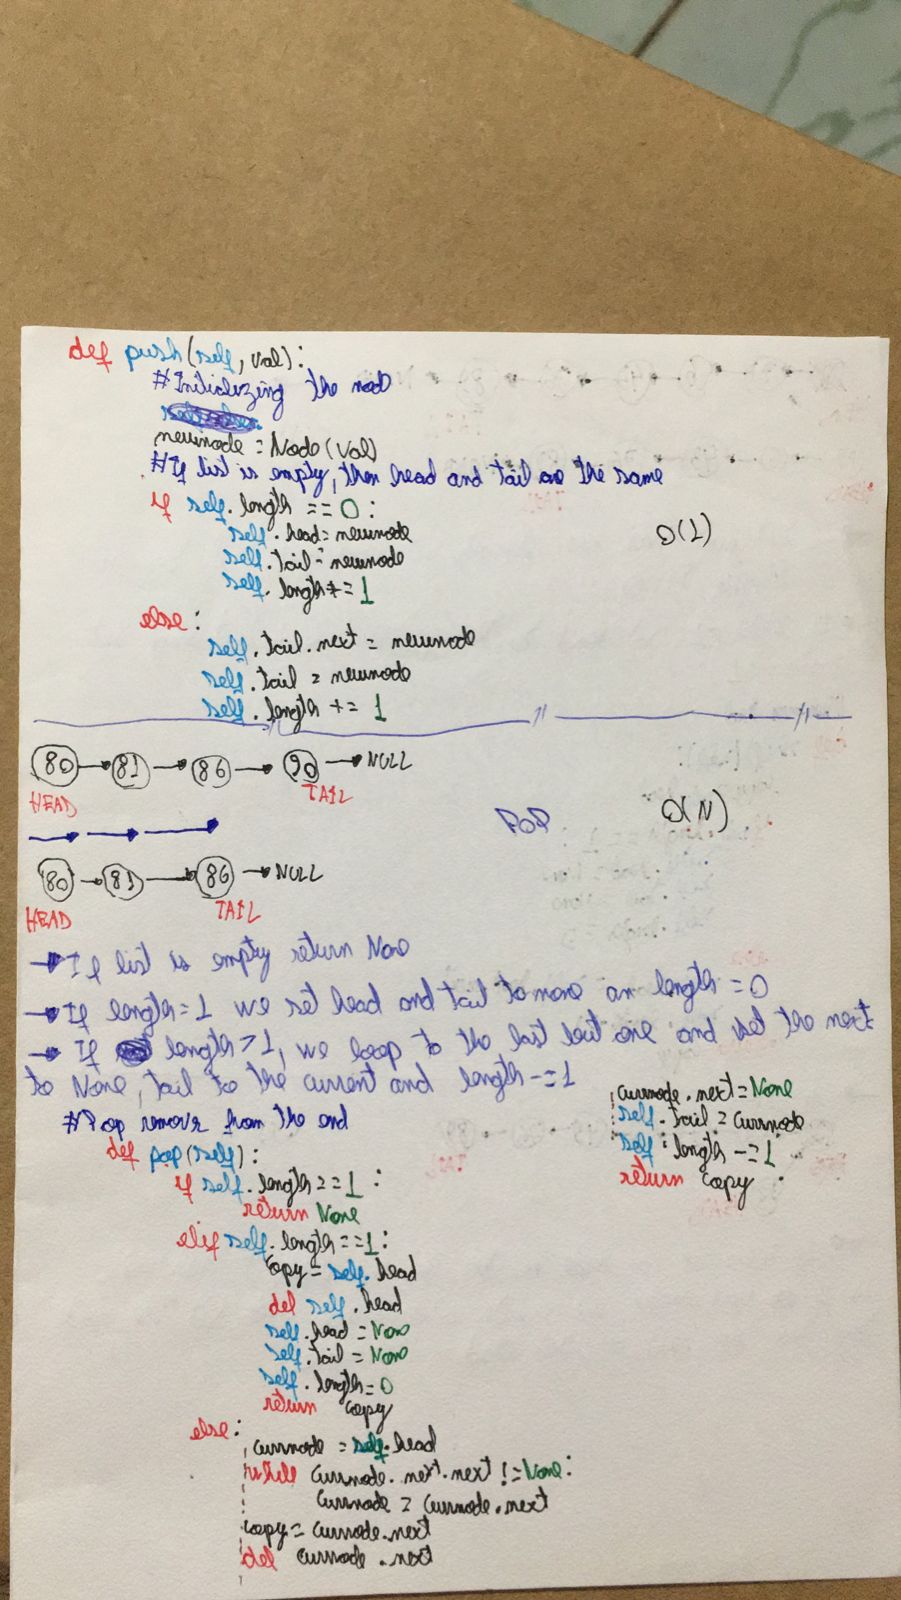 def push(self, val):
#Initializing the node
newnode = Node(val)
#If list is empty, then head and tail are the same
if self.length == 0:
self.head = newnode
O(1)
self.tail = newnode
self.length += 1
else:
self.tail.next = newnode
self.tail = newnode
self.length += 1
80 → 81 → 86 → 90 → NULL
HEAD TAIL
POP O(N)
80 → 81 → 86 → NULL
HEAD TAIL
→ If list is empty return None
→ If length=1 we set head and tail to none an length = 0
→ If length>1, we loop to the last but one and set the next
to None, tail to the current and length -=1
#Pop removes from the end
def pop(self):
if self.length == 1:
return None
elif self.length == 1:
copy = self.head
del self.head
self.head = None
self.tail = None
self.length = 0
return copy
else:
currnode = self.head
while currnode.next.next != None:
currnode = currnode.next
copy = currnode.next
del currnode.next
currnode.next = None
self.tail = currnode
self.length -= 1
return copy